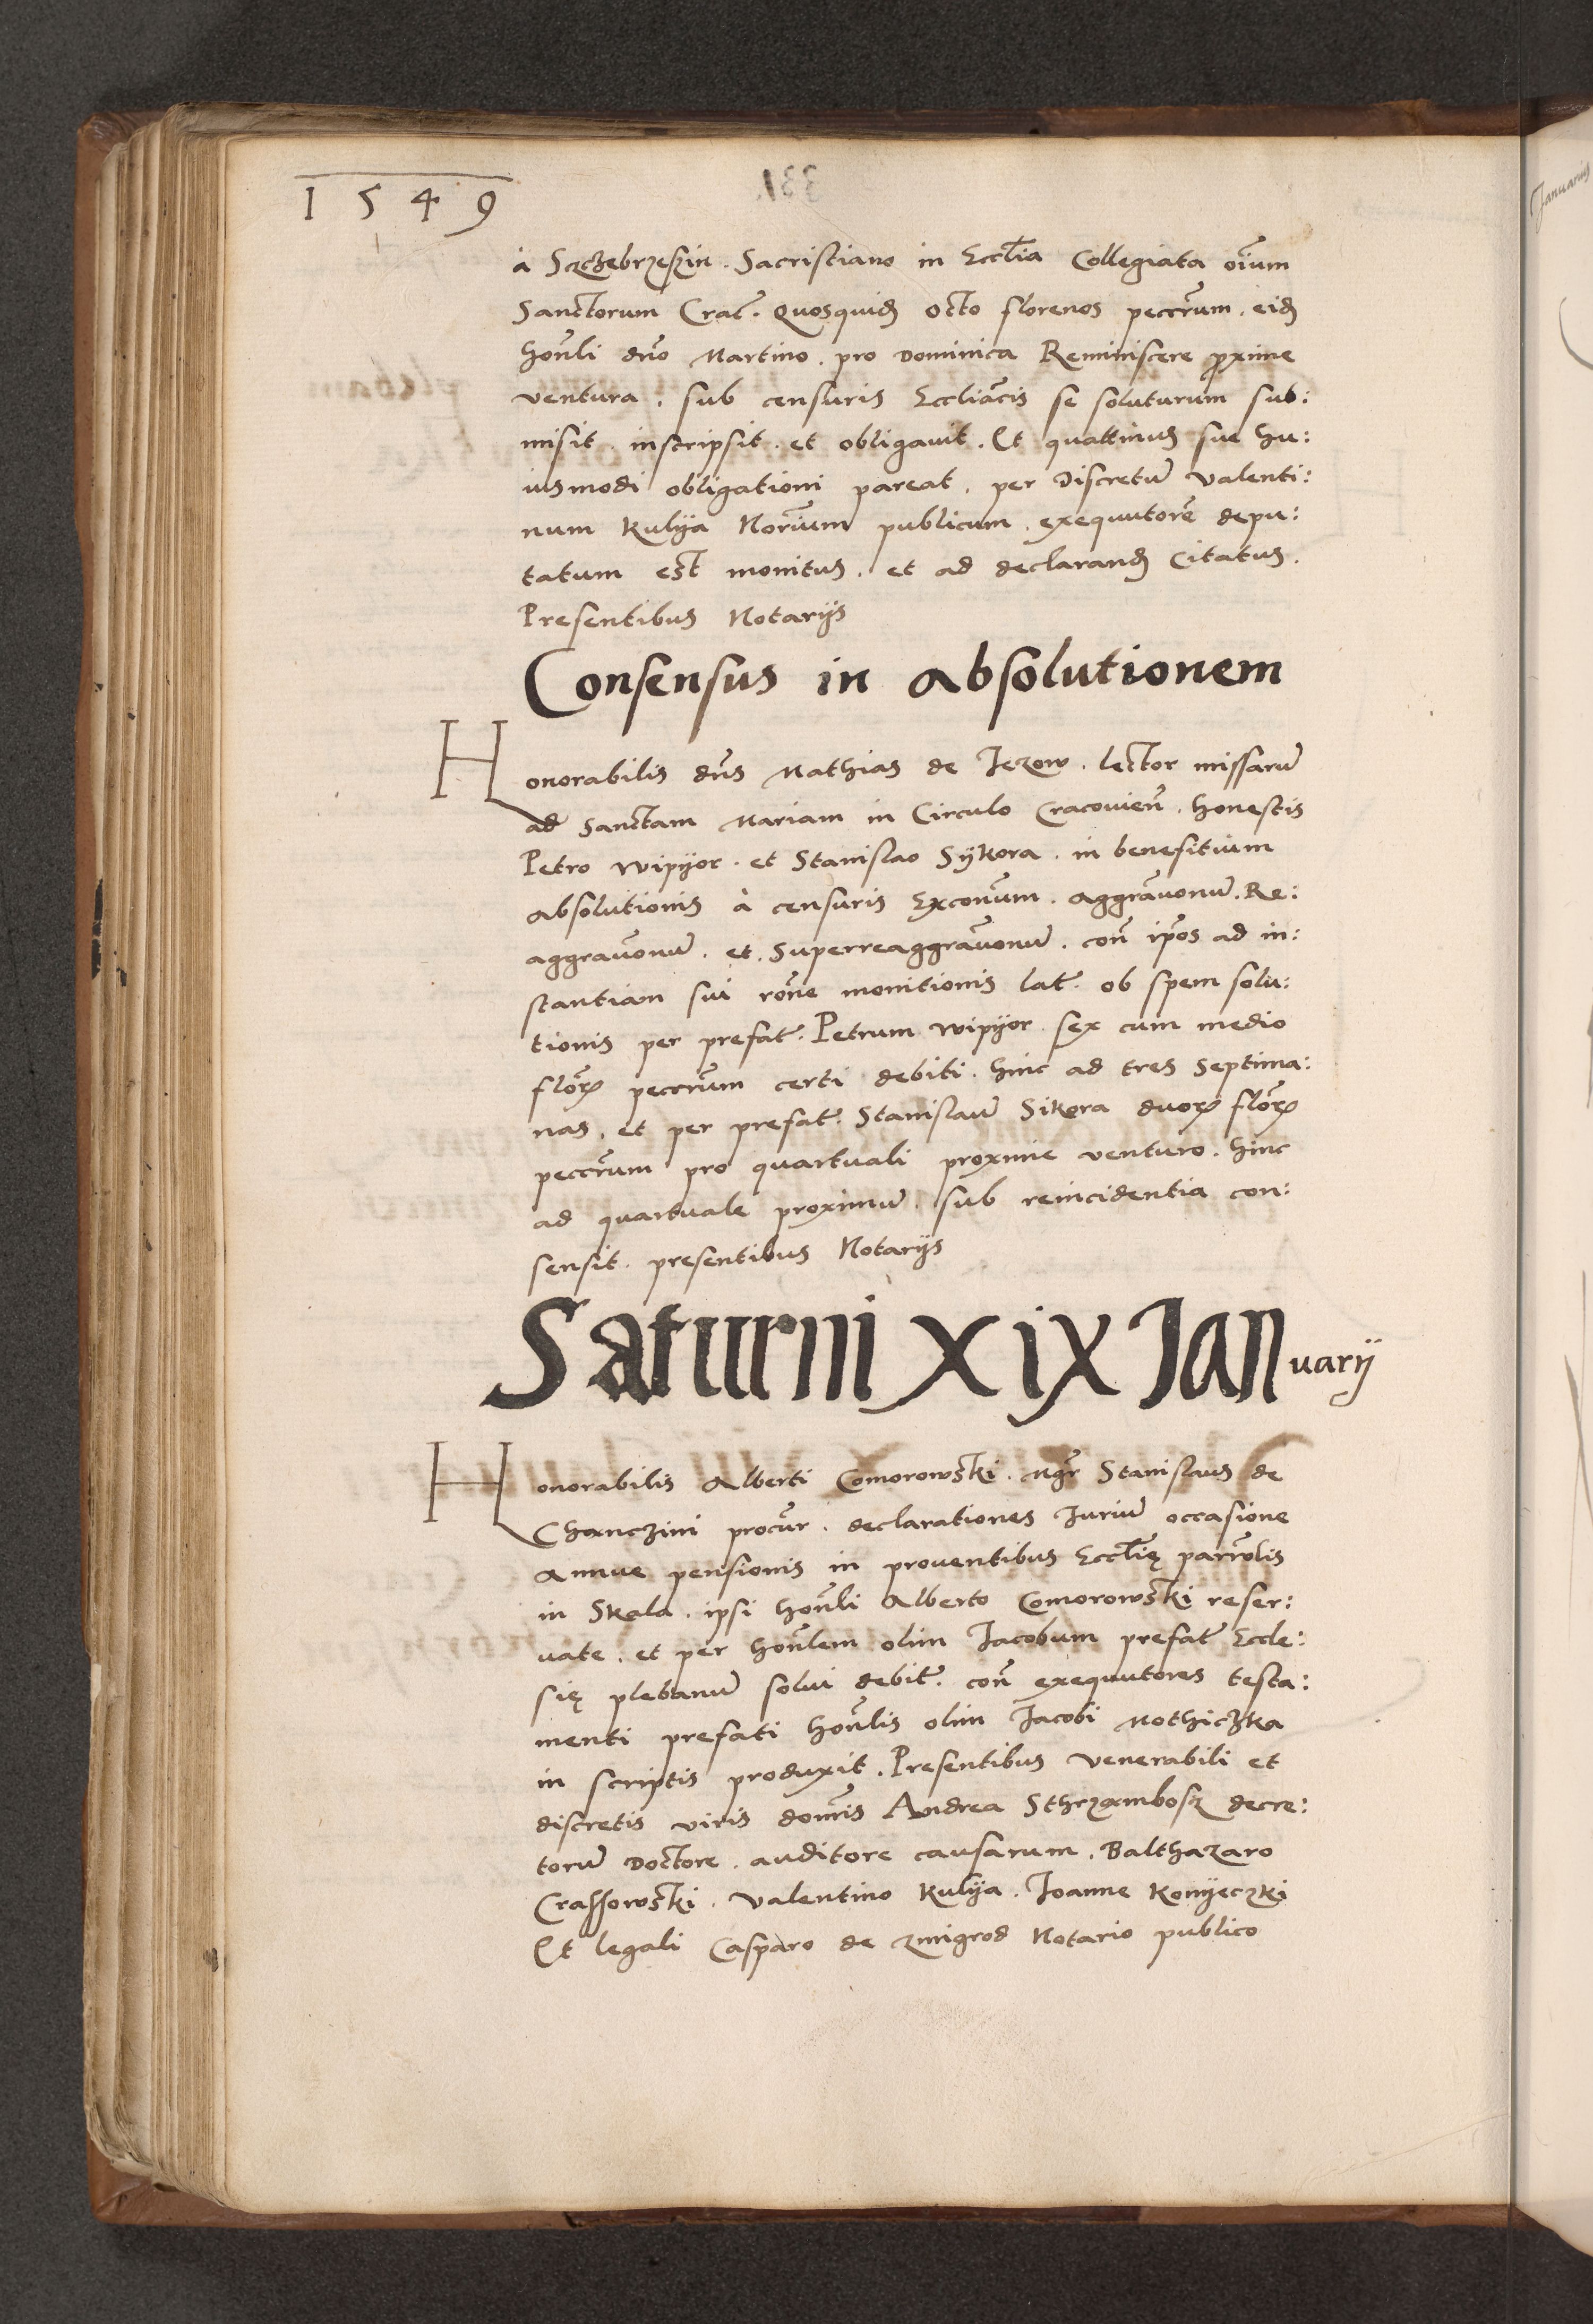 1549
à Sczebrzeszin. Sacristiano in Eccl̃ia Collegiata oĩum
Sanctorum Crac̃. Quosquid̃ octo florenos peccr̃um. eid̃
hoñli dño Martino. pro Dominica Reminiscere proxime
ventura. sub censuris Eccliãcis se soluturum sub:
misit. inscripsit. et obligavit. Et quattinus sue hu:
iusmodi obligationi pareat. per Discretũ Valenti:
num Kulija Norĩum publicum. exequutorẽ depu:
tatum est monitus. et ad declarand̃ Citatus.
Presentibus Notarijs
Consensus in absolutionem
Honorabilis dñs Mathias de Jezow. lector missarũ
ad Sanctam Mariam in Circulo Cracovieñ. honestis
Petro Wipijor. et Stanislao Sijkora. in benefitium
absolutionis à censuris Exconũm. aggravõnũ. Re:
aggravõnũ. et. Superreaggravõnũ. coñ ip̃os ad in:
stantiam sui rõne monitionis lat̃. ob spem solu:
tionis per prefat̃. Petrum Wipijor. sex cum medio
florꝝ peccr̃um certi debiti. hinc ad tres septima:
nas. et per prefat̃. Stanislaũ Sikora duorꝝ florꝝ
peccr̃um pro quartuali proxime venturo. hinc
ad quartuale proximũ. sub reincidentia con:
sensit. presentibus Notarijs
Saturni xix Januarij
Honorabilis Alberti Comorowski. Mgr̃ Stanislaus de
Chanczini procur̃. declarationes Juriũ occasione
annue pensionis in proventibus Eccl̃ię parrol̃is
in Skala. ipsi hoñli Alberto Comorowski reser:
vate. et per hoñlem olim Jacobum prefat̃ Eccle:
się plebanũ solui debit̃. coñ exequutores testa:
menti prefati hoñlis olim Jacobi Mothiczka
in scriptis produxit. Presentibus Venerabili et
discretis viris domĩs Andrea Sthrzambosz decre:
torũ Doctore. auditore causarum. Balthazaro
Crassowski. Valentino Kulija. Joanne Konijeczki
Et legali Casparo de Zmigrod Notario publico